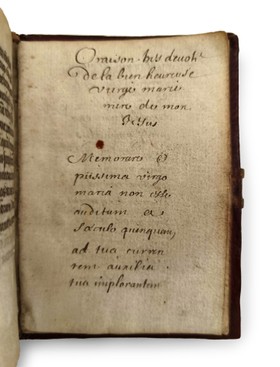 Oraison tres devote
de la bien heureuse
vierge marie
mere de mon
Jesus
Memorare ô
piissima virgo
maria non esse
auditum a
sæculo quenquam
ad tua curren
rem auxilia
tua implorantem